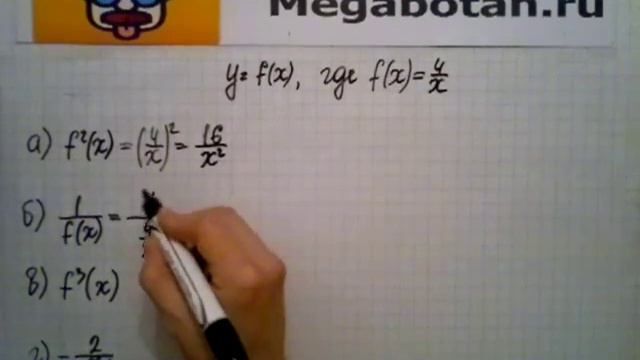 Megabotan.ru
y = f(x), где f(x) = 4/x
а) f²(x) = (4/x)² = 16/x²
б) 1/f(x) =
в) f³(x)
г) - 2